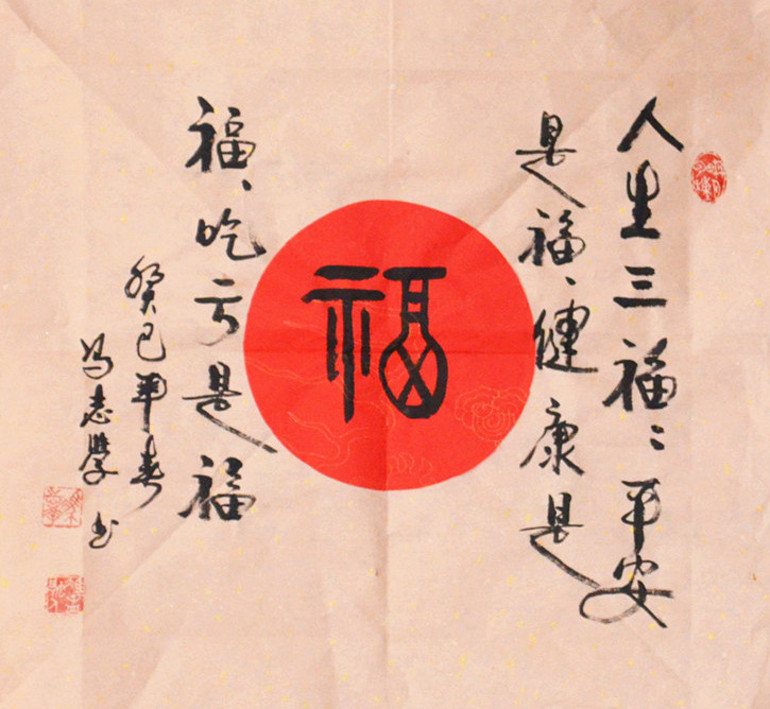 人生三福：平安
是福、健康是
福
福、吃亏是福
癸巳年春
冯志學书